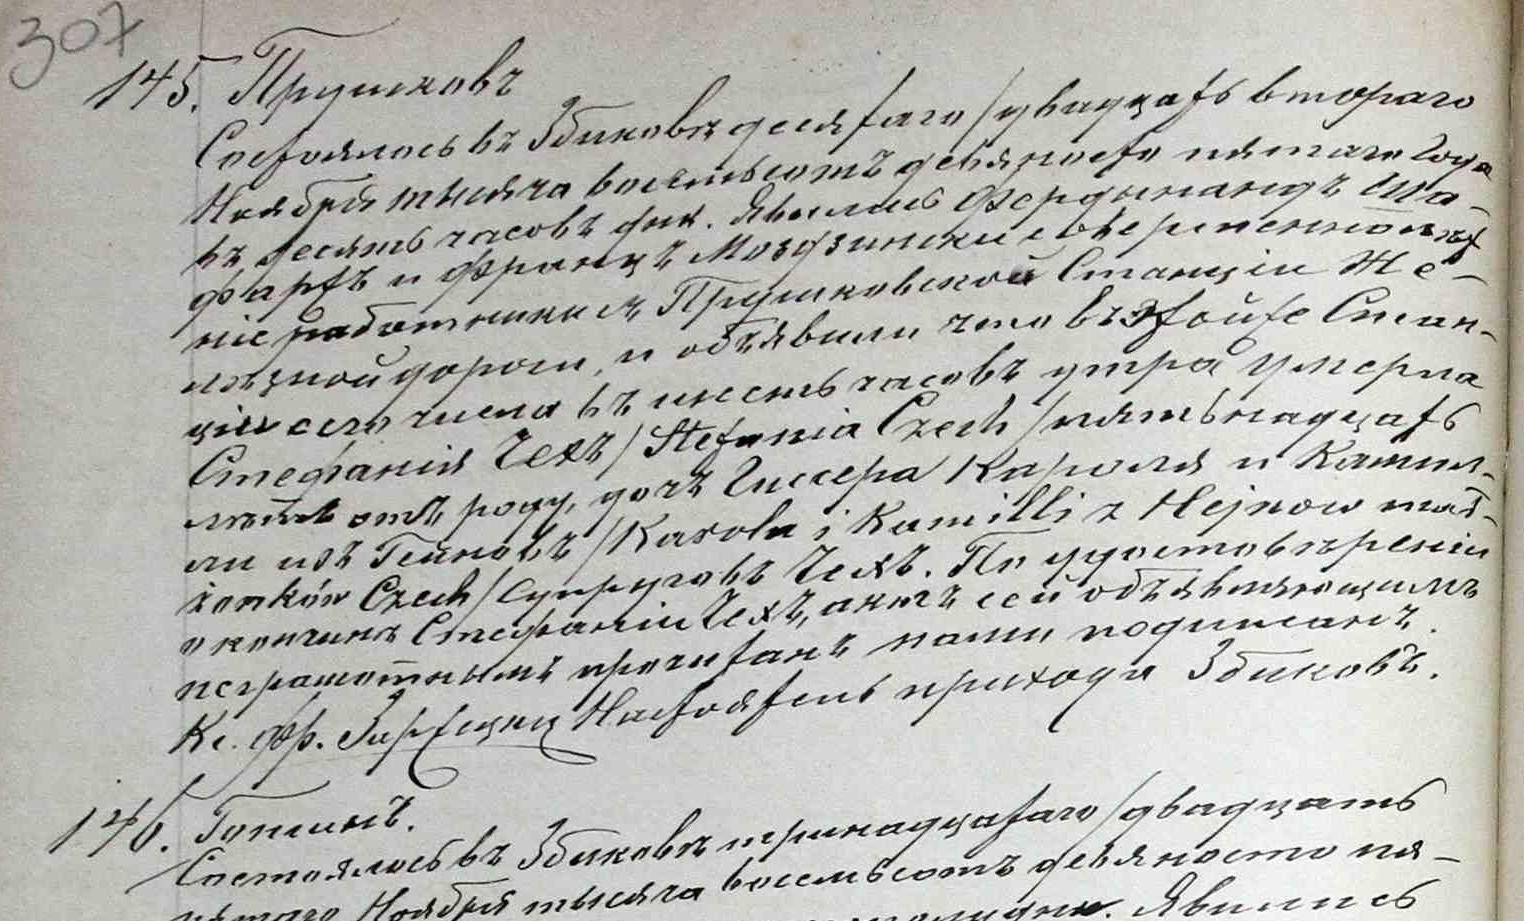 307
145. Прушковъ
Состоялось въ Збиковѣ десятаго /двадцать втораго
Ноября тысяча восемьсотъ девяносто пятаго года
въ десять часовъ дня. Явились Фердинандъ
и Францъ совершеннолѣт-
ніе работники изъ Прушковской Станціи Же-
лѣзной дороги, и объявили что въ этой же Стан-
ціи сего числа въ шесть часовъ утра умерла
Стефанія Чехъ /Stefania Czech/ пятьнадцать
лѣтъ отъ роду, дочь Гиссера Кароля и Камил-
ли изъ Гейновъ /Karola i Kamilli z Hejnow mał-
żonków Czech/ Супруговъ Чехъ. По удостовѣреніи
о кончинѣ Стефаніи Чехъ, актъ сей объявляющимъ
неграмотнымъ прочитанъ нами подписанъ.
Кс. Фр. Настоятель прихода Збиковъ.
146.
Состоялось въ Збиковѣ тринадцатаго /двадцать
пятаго Ноября тысяча восемьсотъ девяносто пя-
Явились